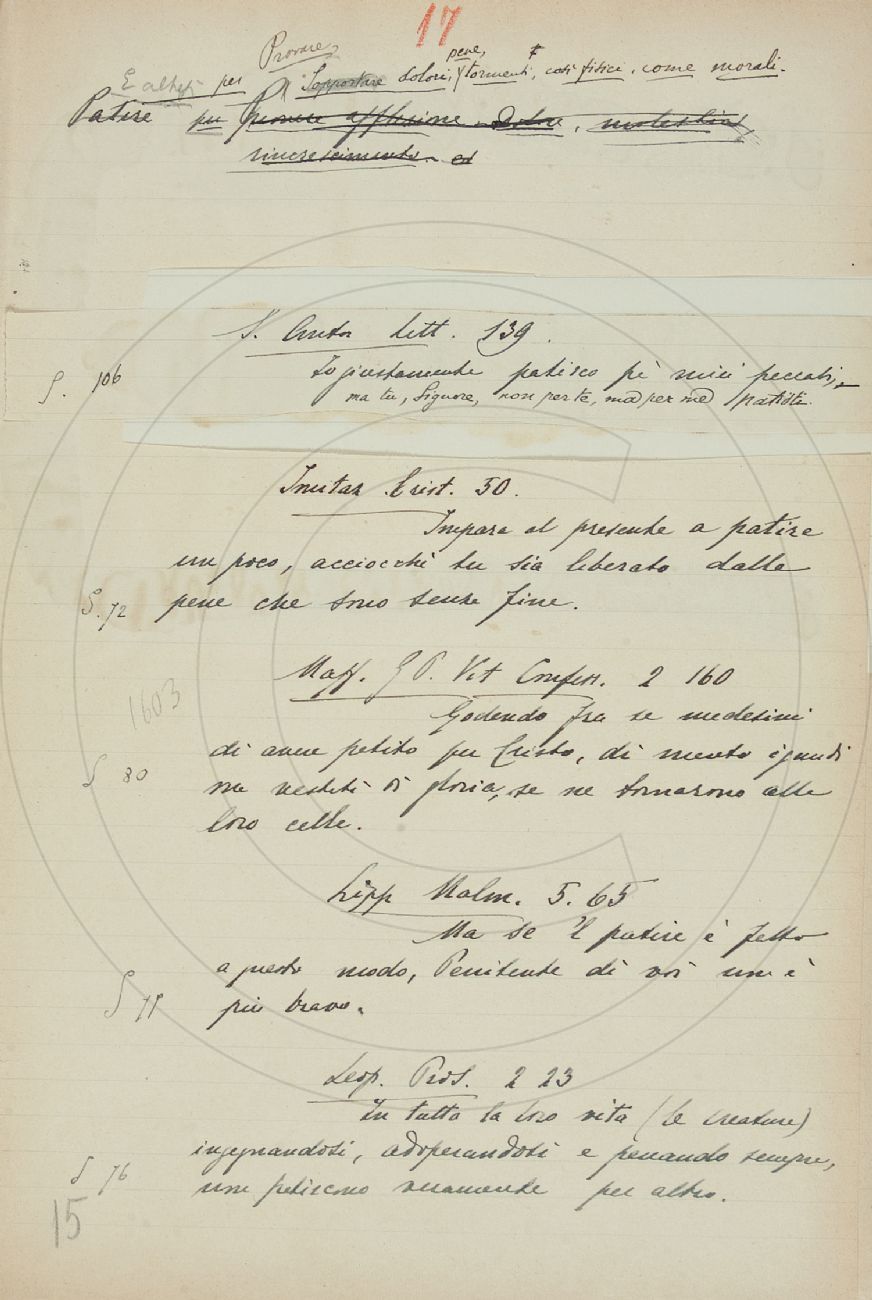 17
Provare,
pene,
E altresì per Sopportare dolori, tormenti, così fisici, come morali.
Patire per provare afflizione, dolore, molestia,
rincrescimento. ed
S. Crist. Lett. 139.
S. 106
Io giustamente patisco pe' miei peccati,
ma tu, Signore, non per te, ma per me patisti.
Imitaz. Crist. 50.
Impara al presente a patire
un poco, acciocchè tu sia liberato dalle
S. 72 pene che sono senza fine.
Maff. G P. Vit Confess. 2 160
1603
Godendo fra se medesimi
di aver patito per Cristo, di merito ignudi
S 80
ma vestiti di gloria, se ne tornarono alle
loro celle.
Lipp Malm. 5. 65
Ma se 'l patire è fatto
a questo modo, Penitente di voi non è
S 77 più bravo.
Leop. Pros. 2 23
In tutta la loro vita (le creature)
ingegnandosi, adoperandosi e penando sempre,
S 76 non patiscono veramente per altro.
15